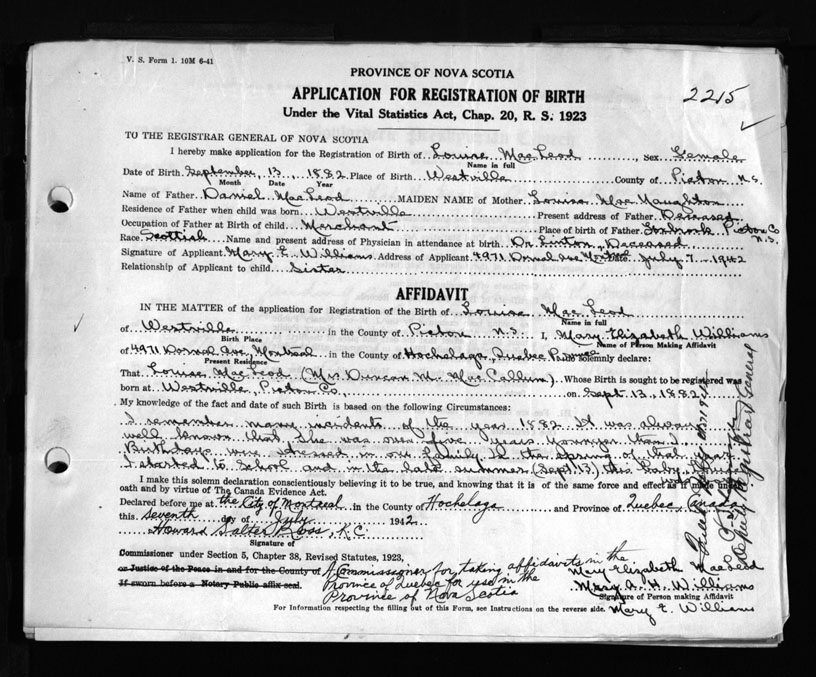 V. S. Form 1. 10M 6-41
PROVINCE OF NOVA SCOTIA
APPLICATION FOR REGISTRATION OF BIRTH
2215
Under the Vital Statistics Act, Chap. 20, R. S. 1923
TO THE REGISTRAR GENERAL OF NOVA SCOTIA
I hereby make application for the Registration of Birth of Louise MacLeod, Sex Female
Name in full
Date of Birth September 13 1882 Place of Birth Westville County of Pictou N.S.
Month Date Year
Name of Father Daniel MacLeod MAIDEN NAME of Mother Louisa MacNaughton
Residence of Father when child was born Westville Present address of Father Deceased
Occupation of Father at Birth of child Merchant Place of birth of Father Pictou Co N.S.
Race Scottish Name and present address of Physician in attendance at birth Dr. Deceased
Signature of Applicant Mary E. Williams Address of Applicant 4971 Ave Montreal Date July 7 - 1942
Relationship of Applicant to child Sister
AFFIDAVIT
IN THE MATTER of the application for Registration of the Birth of Louise MacLeod
Name in full
of Westville in the County of Pictou N.S. I, Mary Elizabeth Williams
Birth Place Name of Person Making Affidavit
of 4971 Ave, Montreal in the County of Hochelaga, Quebec Province do solemnly declare:
Present Residence
That Louise MacLeod (Mrs Duncan M. MacCallum) Whose Birth is sought to be registered was
born at Westville, Pictou Co, on Sept 13, 1882
My knowledge of the fact and date of such Birth is based on the following Circumstances:
I remember many incidents of the year 1882. It was always
well known that she was over five years younger than I.
Birthdays were stressed in our family. In the spring of that year
I started to School and in the late summer (Sept 13) this baby, Louise
I make this solemn declaration conscientiously believing it to be true, and knowing that it is of the same force and effect as if made under
oath and by virtue of The Canada Evidence Act.
Declared before me at the City of Montreal in the County of Hochelaga and Province of Quebec, Canada
this seventh day of July 1942
Howard Salter Ross, K.C.
Signature of
Commissioner under Section 5, Chapter 38, Revised Statutes, 1923,
or Justice of the Peace in and for the County of A Commissioner for taking affidavits in the
If sworn before a Notary Public affix seal. Province of Quebec for use in the
Province of Nova Scotia
Mary Elizabeth MacLeod
Mary A. H. Williams
Signature of Person making Affidavit
For Information respecting the filling out of this Form, see Instructions on the reverse side. Mary E. Williams
Deputy Registrar General